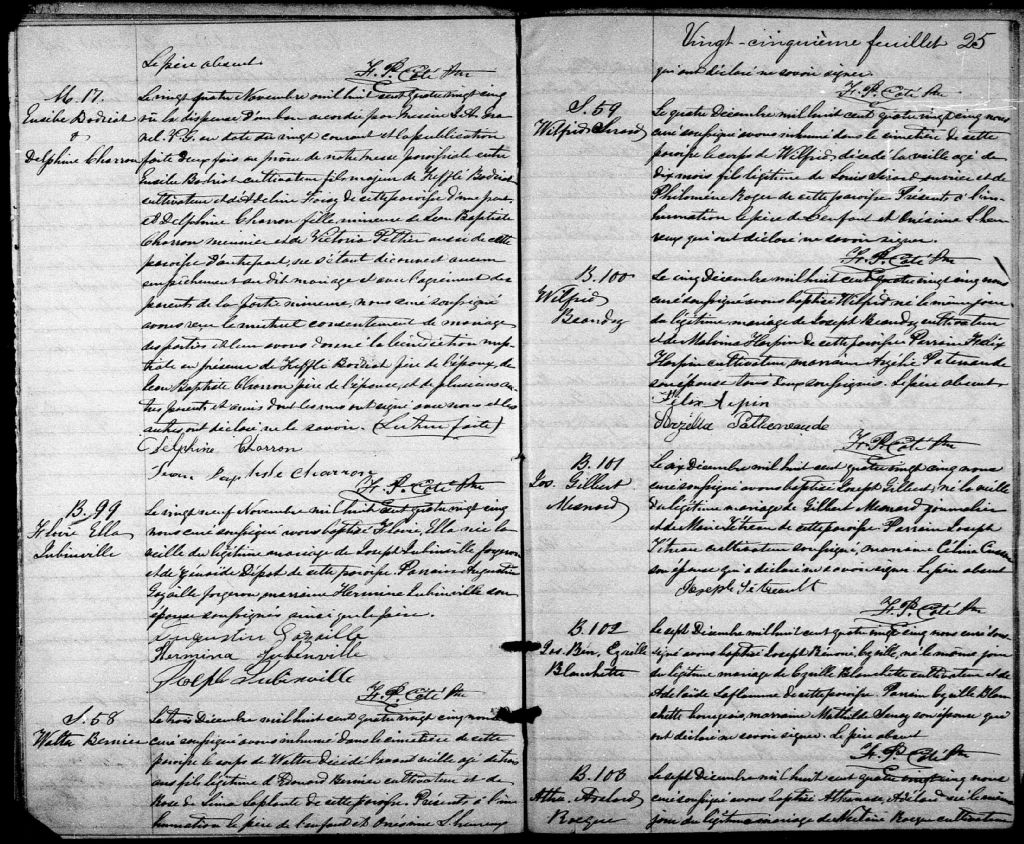 Le père absent
H. P. Côté Ptre
M. 17.
Eusèbe Bodriot
&
Delphine Charron
Le vingt quatre Novembre mil huit cent quatre vingt cinq
vu la dispense d'un ban accordée par messire
V. G. en date du vingt courant et la publication
faite deux fois au prône de notre messe paroissiale entre
Eusèbe Bodriot cultivateur fils majeur de Bodriot
cultivateur et d'Adeline de cette paroisse d'une part,
et Delphine Charron fille mineure de Jean Baptiste
Charron meunier et de Victoria Peltier aussi de cette
paroisse d'autre part, ne s'étant découvert aucun
empêchement au dit mariage et avec l'agrément des
parents de la partie mineure, nous curé soussigné
avons reçu le mutuel consentement de mariage
des parties et leur avons donné la bénédiction nup-
tiale en présence de Bodriot père de l'époux, de
Jean Baptiste Charron père de l'épouse, et de plusieurs au-
tres parents et amis dont les uns ont signé avec nous et les
autres ont déclaré ne le savoir. (Lecture faite)
Delphine Charron
Jean Baptiste Charron
H. P. Côté Ptre
B. 99
Ella
Lubinville
Le vingt neuf Novembre mil huit cent quatre vingt cinq
nous curé soussigné avons baptisé Ella née la
veille du légitime mariage de Joseph Lubinville forgeron
et de Zénaïde de cette paroisse. Parrain Augustin
Gazaille forgeron, marraine Hermine Lubinville son
épouse soussignés ainsi que le père.
Augustin Gazaille
Hermina Lubenville
Joseph Lubinville
H. P. Côté Ptre
S. 58
Walter Bernier
Le trois Décembre mil huit cent quatre vingt cinq nous
curé soussigné avons inhumé dans le cimetière de cette
paroisse le corps de Walter décédé la veille agé de trois
ans fils légitime d'Edouard Bernier cultivateur et de
Rose de Lima Laplante de cette paroisse. Présents à l'in-
humation le père de l'enfant et Onésime L'heureux
Vingt-cinquième feuillet 25
qui ont déclaré ne savoir signer.
H. P. Côté Ptre
S. 59
Wilfrid Girard
Le quatre Décembre mil huit cent quatre vingt cinq nous
curé soussigné avons inhumé dans le cimetière de cette
paroisse le corps de Wilfrid, décédé la veille agé de
dix mois fils légitime de Louis Girard ouvrier et de
Philomène Roger de cette paroisse Présents à l'in-
humation le père de l'enfant et Onésime L'heu-
reux qui ont déclaré ne savoir signer.
H. P. Côté Ptre
B. 100
Wilfrid
Beaudry
Le cinq Décembre mil huit cent quatre vingt cinq nous
curé soussigné avons baptisé Wilfrid, né le même jour
du légitime mariage de Joseph Beaudry cultivateur
et de Malvina de cette paroisse Parrain Félix
cultivateur, marraine Azélie Patenaude
son épouse tous deux soussignés. Le père absent
Félix
Patheneaude
H. P. Côté Ptre
B. 101
Jos. Gilbert
Mesnard
Le six Décembre mil huit cent quatre vingt cinq nous
curé soussigné avons baptisé Joseph Gilbert, né la veille
du légitime mariage de Gilbert Mesnard journalier
et de Marie Tétreau de cette paroisse Parrain Joseph
Tétreau cultivateur soussigné, marraine Célina
son épouse qui a déclaré ne savoir signer. Le père absent
Joseph Tétreault
H. P. Côté Ptre
B. 102
Jos. Bén. Cyrille
Blanchette
Le sept Décembre mil huit cent quatre vingt cinq nous curé sous-
signé avons baptisé Joseph Bénoni Cyrille, né le même jour
du légitime mariage de Cyrille Blanchette cultivateur et de
Adelaïde Laflamme de cette paroisse Parrain Cyrille Blan-
chette bourgeois, marraine Mathilde son épouse qui
ont déclaré ne savoir signer. Le père absent
H. P. Côté Ptre
B. 103
Atha. Adelard
Rocque
Le sept Décembre mil huit cent quatre vingt cinq nous
curé soussigné avons baptisé Athanase, Adélard né le même
jour du légitime mariage de Rocque cultivateur